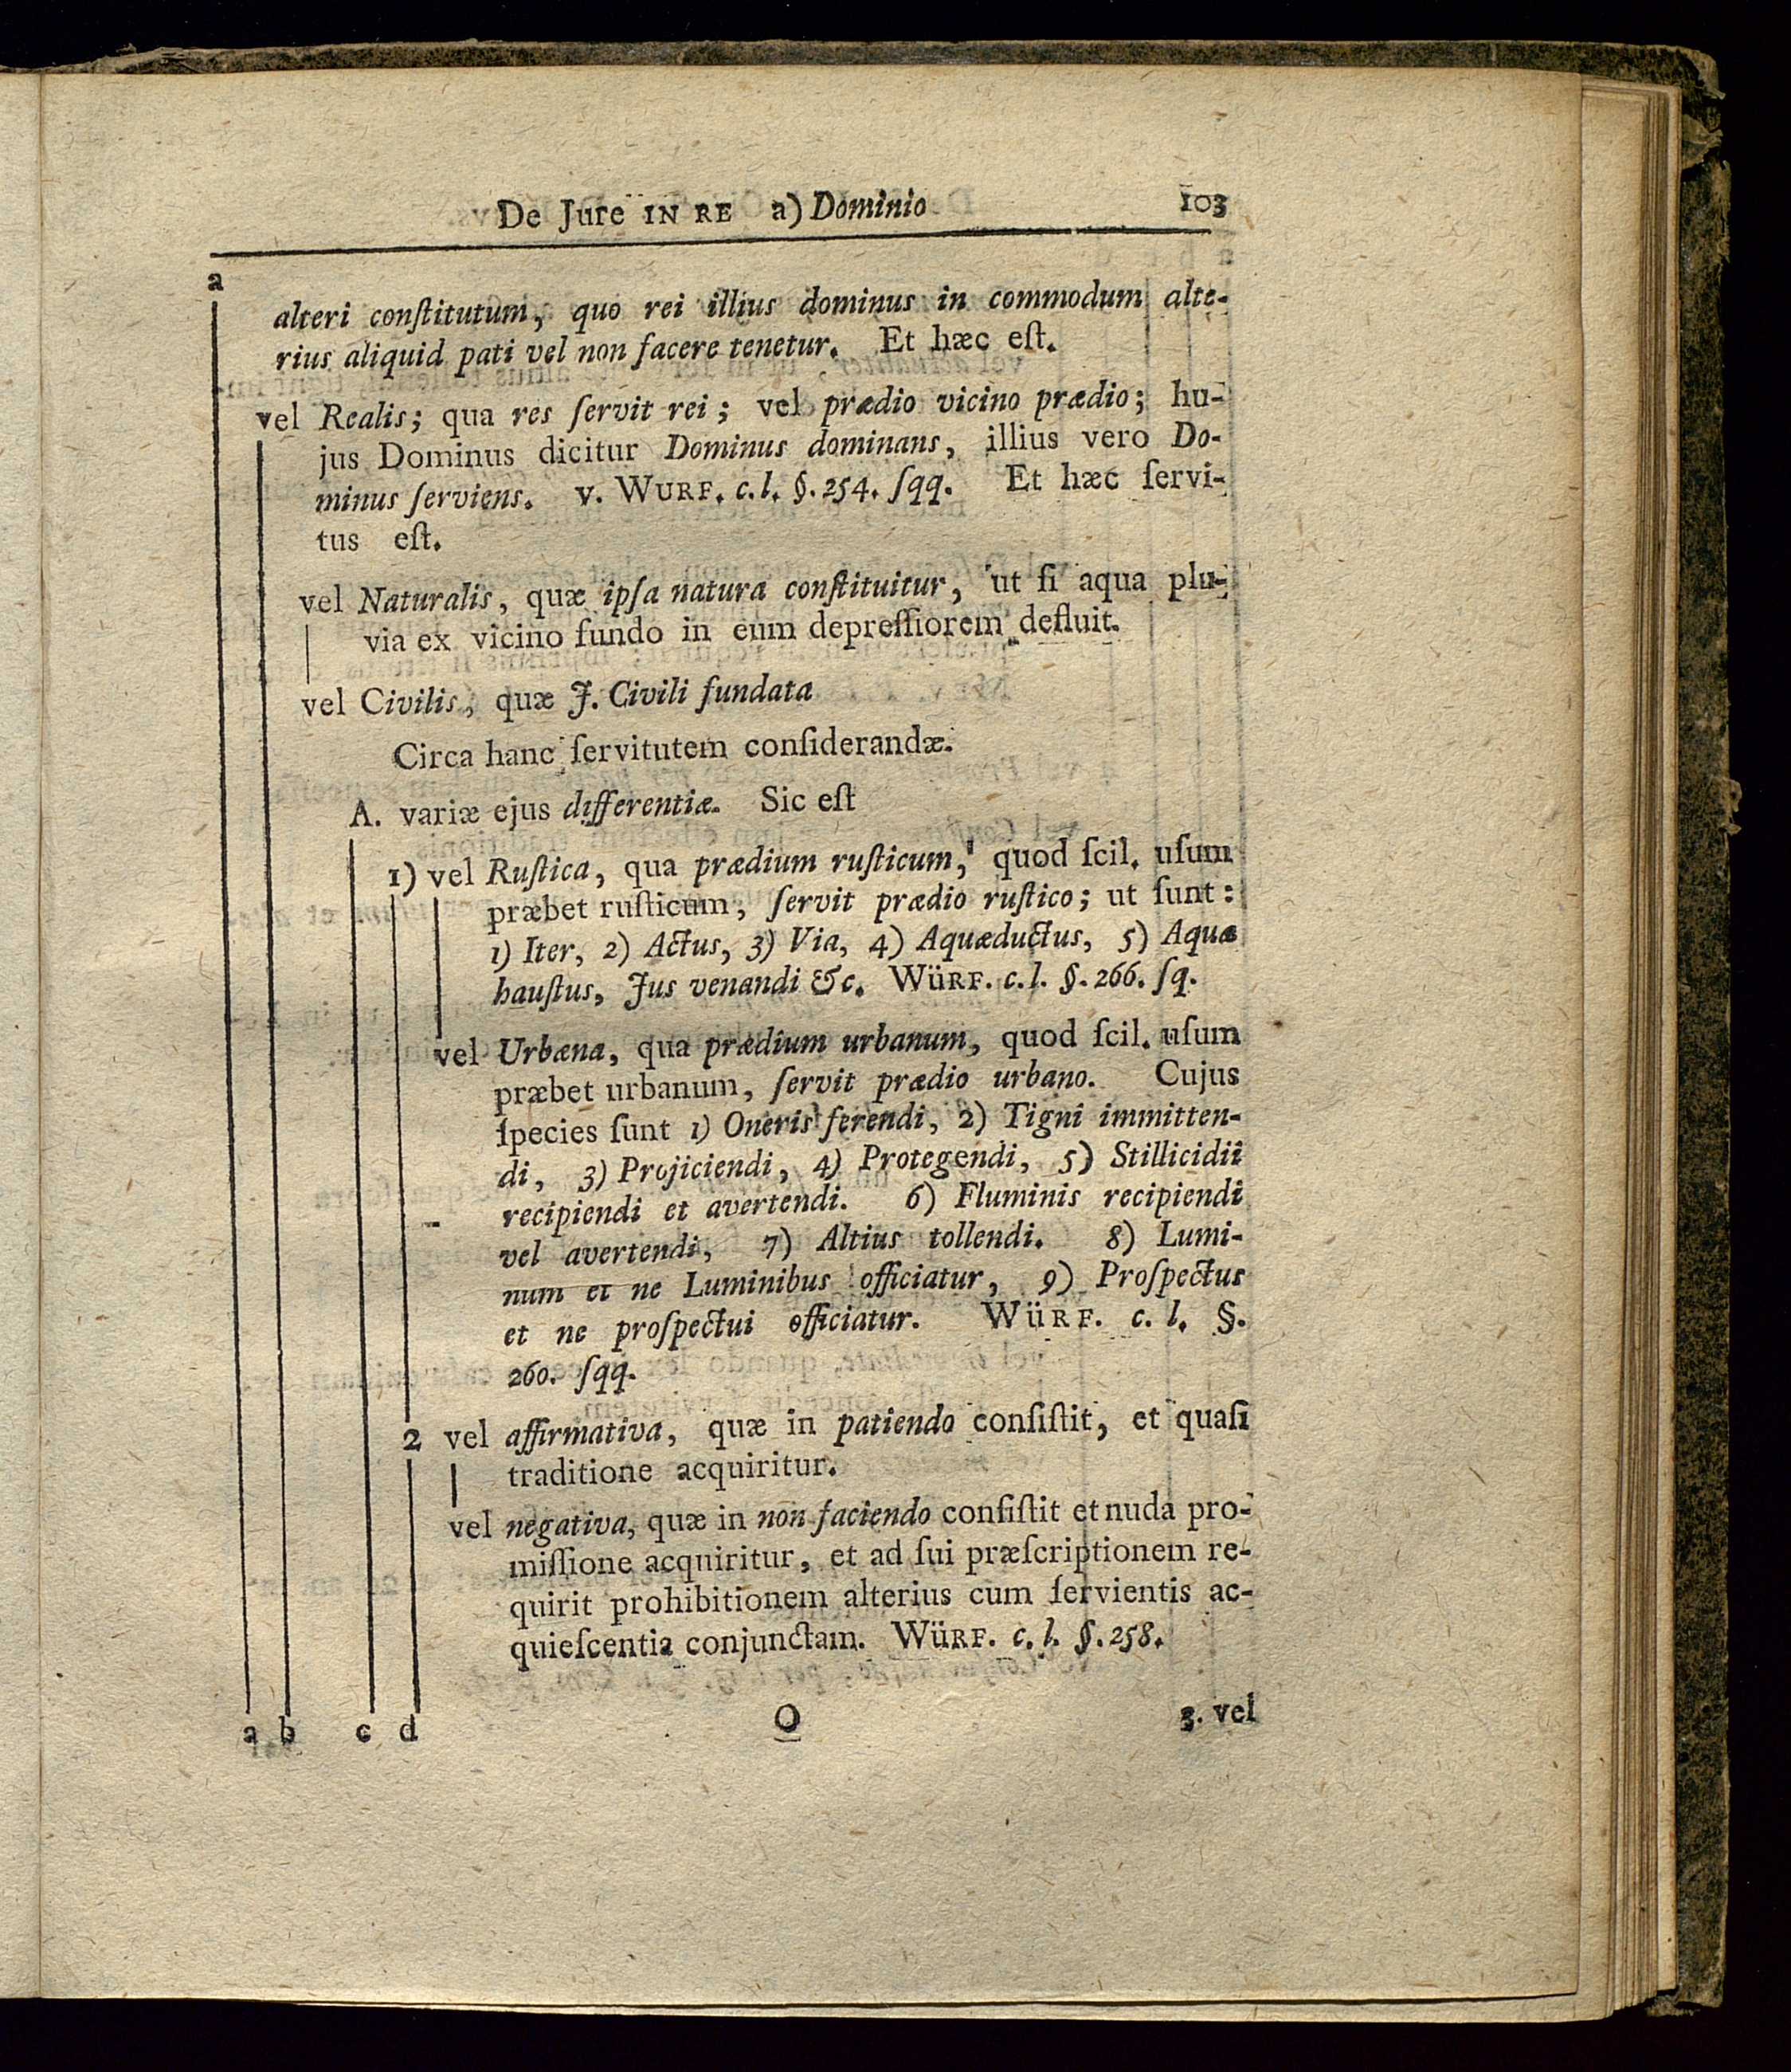 De Jure IN RE a) Dominio 103
a
alteri conſtitutum, quo rei illius dominus in commodum alte-
rius aliquid pati vel non facere tenetur. Et hæc eſt.
vel Realis; qua res ſervit rei; vel prædio vicino prædio; hu-
jus Dominus dicitur Dominus dominans, illius vero Do-
minus ſerviens. v. WURF. c. l. §. 254. ſqq. Et hæc ſervi-
tus eſt.
vel Naturalis, quæ ipſa natura conſtituitur, ut ſi aqua plu-
via ex vicino fundo in eum depreſſiorem defluit.
vel Civilis, quæ J. Civili fundata
Circa hanc ſervitutem conſiderandæ.
A. variæ ejus differentiæ. Sic eſt
1) vel Ruſtica, qua prædium ruſticum, quod ſcil. uſum
præbet ruſticum, ſervit prædio ruſtico; ut ſunt:
1) Iter, 2) Actus, 3) Via, 4) Aquæductus, 5) Aquæ
hauſtus, Jus venandi &c. WÜRF. c. l. §. 266. ſq.
vel Urbana, qua prædium urbanum, quod ſcil. uſum
præbet urbanum, ſervit prædio urbano. Cujus
ſpecies ſunt 1) Oneris ferendi, 2) Tigni immitten-
di, 3) Projiciendi, 4) Protegendi, 5) Stillicidii
recipiendi et avertendi. 6) Fluminis recipiendi
vel avertendi, 7) Altius tollendi. 8) Lumi-
num et ne Luminibus officiatur, 9) Proſpectus
et ne proſpectui officiatur. WÜRF. c. l. §.
260. ſqq.
2 vel affirmativa, quæ in patiendo conſiſtit, et quaſi
traditione acquiritur.
vel negativa, quæ in non faciendo conſiſtit et nuda pro-
miſſione acquiritur, et ad ſui præſcriptionem re-
quirit prohibitionem alterius cum ſervientis ac-
quieſcentia conjunctam. WÜRF. c. l. §. 258.
a b c d O 3. vel